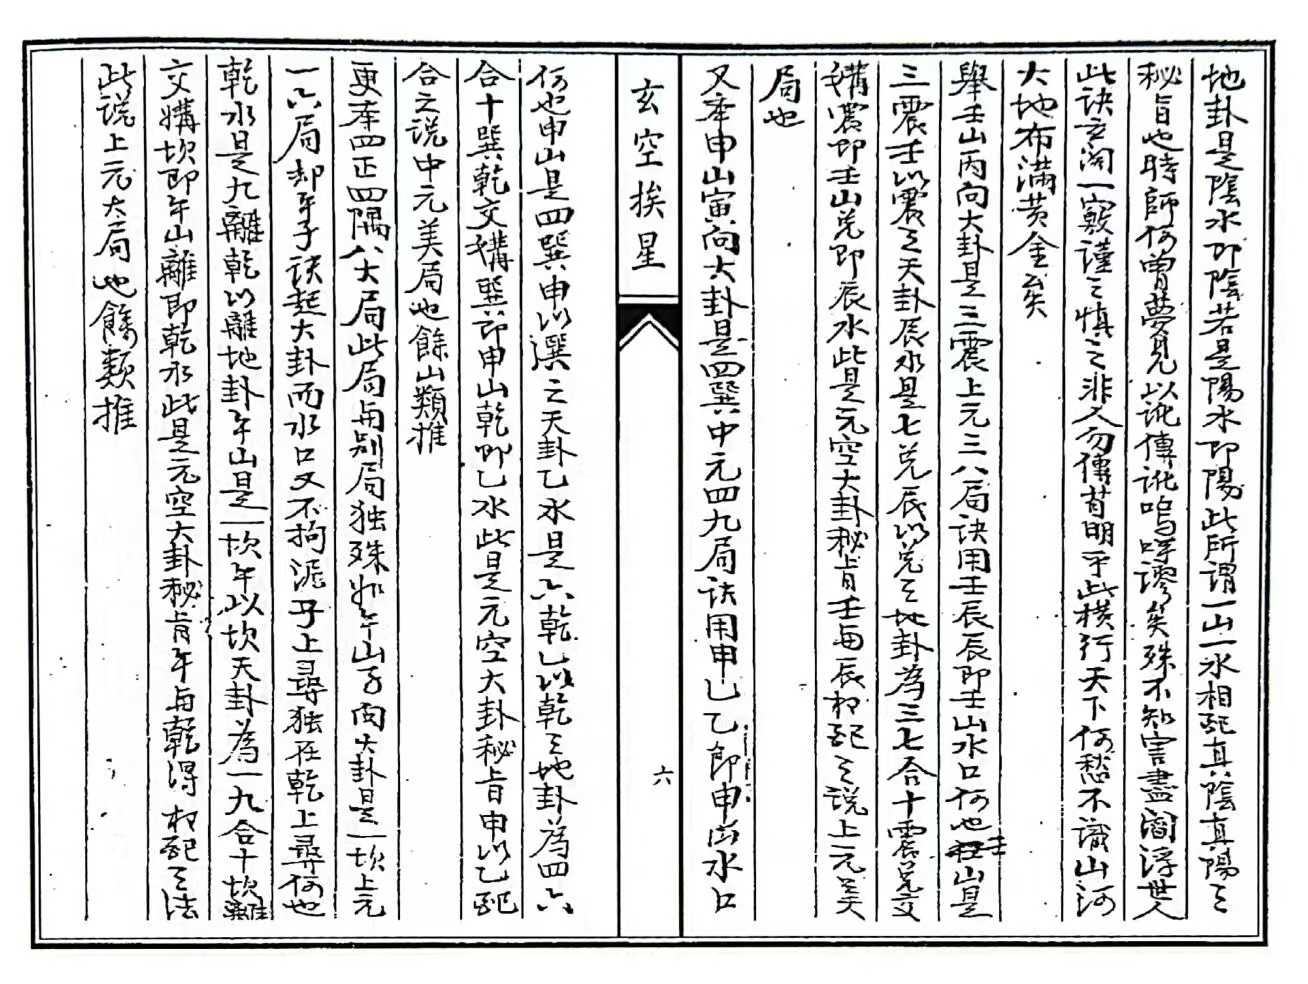 地卦是陰水即陰若是陽水即陽此所謂一山一水相配真陰真陽之
秘旨也時師何曾夢見以訛傳訛嗚呼謬矣殊不知害盡閻浮世人
此訣玄關一竅謹之慎之非人勿傳苟明乎此橫行天下何愁不識山河
大地布滿黄金矣
舉壬山丙向大卦是三震上元三八局訣用壬辰辰即壬山水口何也壬山是
三震壬以震之天卦辰水是七兌辰以兌之地卦為三七合十震兌交
媾震即壬山兌即辰水此是元空大卦秘旨壬与辰相配之說上元美
局也
又本申山寅向大卦是四巽中元四九局訣用申乙乙即申山水口
玄空挨星
六
何也申山是四巽申以選之天卦乙水是六乾乙以乾之地卦為四六
合十巽乾交媾巽即申山乾即乙水此是元空大卦秘旨申以乙配
合之說中元美局也餘山類推
更奉四正四隅八大局此局与别局独殊如午山子向大卦是一坎上元
一六局却午子訣起大卦而水口又不拘泥子上尋独在乾上尋何也
乾水是九離乾以離地卦午山是一坎午以坎天卦為一九合十坎離
交媾坎即午山離即乾水此是元空大卦秘旨午与乾得相配之法
此說上元大局也餘類推